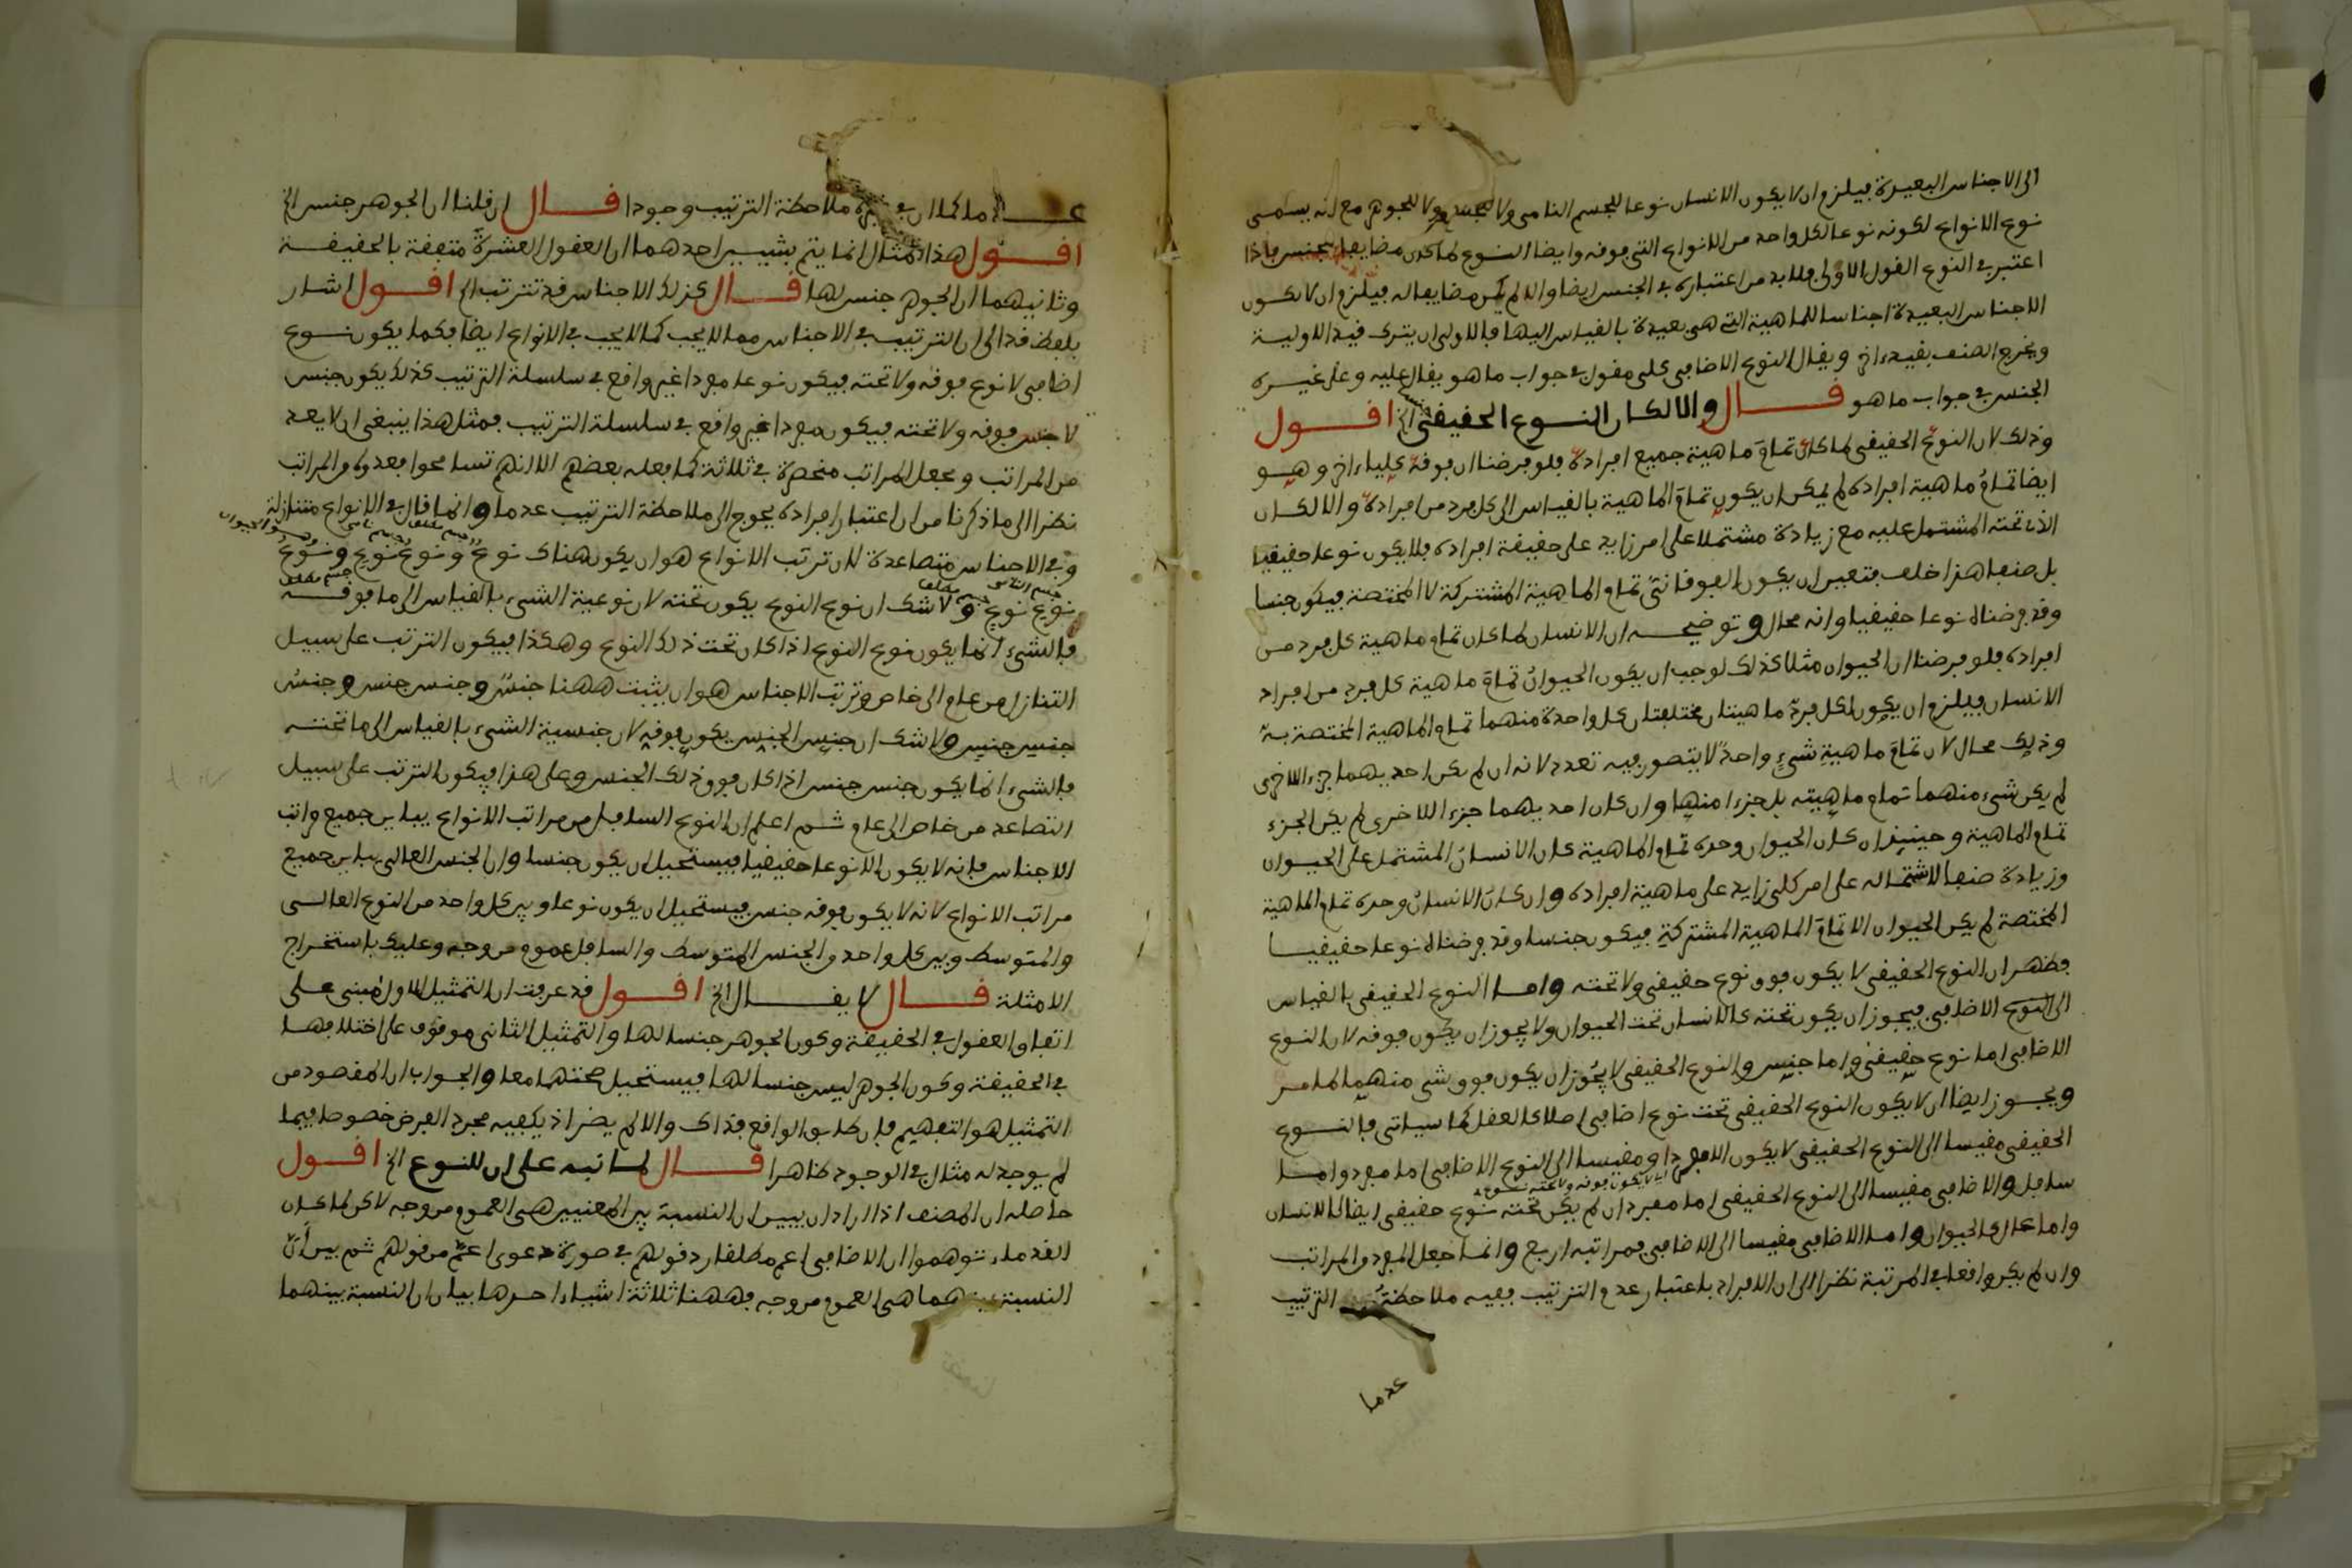 الى الاجناس البعيدة فيلزم ان لا يكون الانسان نوعا للجسم النامى ولا للجسم ولا للجوهر مع انه يسمى
نوع الانواع لكونه نوعا لكل واحد من الانواع التى فوقه وايضا النوع لما كان مضايفا للجنس فاذا
اعتبر فى النوع القول الاولى فلا بد من اعتباره فى الجنس ايضا والا لم يكن مضايفا له فيلزم ان لا تكون
الاجناس البعيدة اجناسا للماهية التى هى بعيدة بالقياس اليها فالاولى ان يترك قيد الاولية
ويخرج الصنف بقيد اخر ويقال النوع الاضافى كلى مقول فى جواب ما هو يقال عليه وعلى غيره
الجنس فى جواب ما هو قال والا لكان النوع الحقيقى الخ اقول
وذلك لان النوع الحقيقى لما كان تمام ماهية جميع افراده فلو فرضنا ان فوقه كليا اخر وهو
ايضا تمام ماهية افراده لم يمكن ان يكون تمام الماهية بالقياس الى كل فرد من افراده والا لكان
الذى تحته المشتمل عليه مع زيادة مشتملا على امر زايد على حقيقة افراده فلا يكون نوعا حقيقيا
بل صنفا هذا خلف فتعين ان يكون الفوقانى تمام الماهية المشتركة لا المختصة فيكون جنسا
وقد فرضناه نوعا حقيقيا وانه محال وتوضيحه ان الانسان لما كان تمام ماهية كل فرد من
افراده فلو فرضنا ان الحيوان مثلا كذلك لوجب ان يكون الحيوان تمام ماهية كل فرد من افراد
الانسان فيلزم ان يكون لكل فرد ماهيتان مختلفتان كل واحدة منهما تمام الماهية المختصة به
وذلك محال لان تمام ماهية شىء واحد لا يتصور فيه تعدد لانه ان لم يكن احديهما جزء الاخرى
لم يكن شىء منهما تمام ماهيته بل جزءا منها وان كان احديهما جزء الاخرى لم يكن الجزء
تمام الماهية وحينئذ ان كان الحيوان وحده تمام الماهية كان الانسان المشتمل على الحيوان
وزيادة صنفا لاشتماله على امر كلى زايد على ماهية افراده وان كان الانسان وحده تمام الماهية
المختصة لم يكن الحيوان الا تمام الماهية المشتركة فيكون جنسا وقد فرضناه نوعا حقيقيا
فظهر ان النوع الحقيقى لا يكون فوق نوع حقيقى ولا تحته واما النوع الحقيقى بالقياس
الى النوع الاضافى فيجوز ان يكون تحته كالانسان تحت الحيوان ولا يجوز ان يكون فوقه لان النوع
الاضافى اما نوع حقيقى واما جنس والنوع الحقيقى لا يجوز ان يكون فوق شى منهما لما مر
ويجوز ايضا ان لا يكون النوع الحقيقى تحت نوع اضافى اصلا كالعقل كما سياتى فالنوع
الحقيقى مقيسا الى النوع الحقيقى لا يكون الا مفردا ومقيسا الى النوع الاضافى اما مفرد واما
سافل والاضافى مقيسا الى النوع الحقيقى اما مفرد ان لم يكن تحته نوع حقيقى ايضا كالانسان
واما عال كالحيوان واما الاضافى مقيسا الى الاضافى فمراتبه اربع وانما جعل المفرد من المراتب
وان لم يكن واقعا فى المرتبة نظرا الى ان الافراد باعتبار عدم الترتيب ففيه ملاحظة الترتيب
عدما
عدما كما ان فى غيره ملاحظة الترتيب وجودا قال ان قلنا ان الجوهر جنس الخ
اقول هذا المثال انما يتم بشيين احدهما ان العقول العشرة متفقة بالحقيقة
وثانيهما ان الجوهر جنس لها قال كذلك الاجناس قد تترتب الخ اقول اشار
بلفظ قد الى ان الترتيب فى الاجناس مما لا يجب كما لا يجب فى الانواع ايضا فكما يكون نوع
اضافى لا نوع فوقه ولا تحته فيكون نوعا مفردا غير واقع فى سلسلة الترتيب كذلك يكون جنس
لا جنس فوقه ولا تحته فيكون مفردا غير واقع فى سلسلة الترتيب فمثل هذا ينبغى ان لا يعد
من المراتب وجعل المراتب منحصرة فى ثلاثة كما فعله بعضهم الا انهم تسامحوا فعدوه من المراتب
نظرا الى ما ذكرنا من ان اعتبار افراده يحوج الى ملاحظة الترتيب عدما وانما قال فى الانواع متنازلة
وفى الاجناس متصاعدة لان ترتب الانواع هو ان يكون هناك نوع ونوع نوع ونوع
نوع نوع ولا شك ان نوع النوع يكون تحته لان نوعية الشىء بالقياس الى ما فوقه
فالشىء انما يكون نوع النوع اذا كان تحت ذلك النوع وهكذا فيكون الترتب على سبيل
التنازل من عام الى خاص وترتب الاجناس هو ان يثبت ههنا جنس وجنس جنس وجنس
جنس جنس ولا شك ان جنس الجنس يكون فوقه لان جنسية الشىء بالقياس الى ما تحته
فالشىء انما يكون جنس جنس اذا كان فوق ذلك الجنس وعلى هذا فيكون الترتب على سبيل
التصاعد من خاص الى عام ثم اعلم ان النوع السافل من مراتب الانواع يباين جميع مراتب
الاجناس فانه لا يكون الا نوعا حقيقيا فيستحيل ان يكون جنسا وان الجنس العالى يباين جميع
مراتب الانواع لانه لا يكون فوقه جنس فيستحيل ان يكون نوعا وبين كل واحد من النوع العالى
والمتوسط وبين كل واحد من الجنس المتوسط والسافل عموم من وجه وعليك باستخراج
الامثلة قال لا يقال الخ اقول قد عرفت ان التمثيل الاول مبنى على
اتفاق العقول فى الحقيقة وكون الجوهر جنسا لها والتمثيل الثانى موقوف على اختلافها
فى الحقيقة وكون الجوهر ليس جنسا لها فيستحيل صحتهما معا والجواب ان المقصود من
التمثيل هو التفهيم فان طابق الواقع فذاك والا لم يضر اذ يكفيه مجرد الفرض خصوصا فيما
لم يوجد له مثال فى الوجود ظاهرا قال لما نبه على ان للنوع الخ اقول
حاصله ان المصنف اذا اراد ان يبين ان النسبة بين المعنيين هى العموم من وجه لاكن لما كان
القدماء توهموا ان الاضافى اعم مطلقا رد قولهم فى صورة دعوى اعم من قولهم ثم بين ان
النسبة بينهما هى العموم من وجه فههنا ثلاثة اشياء احدها بيان ان النسبة بينهما